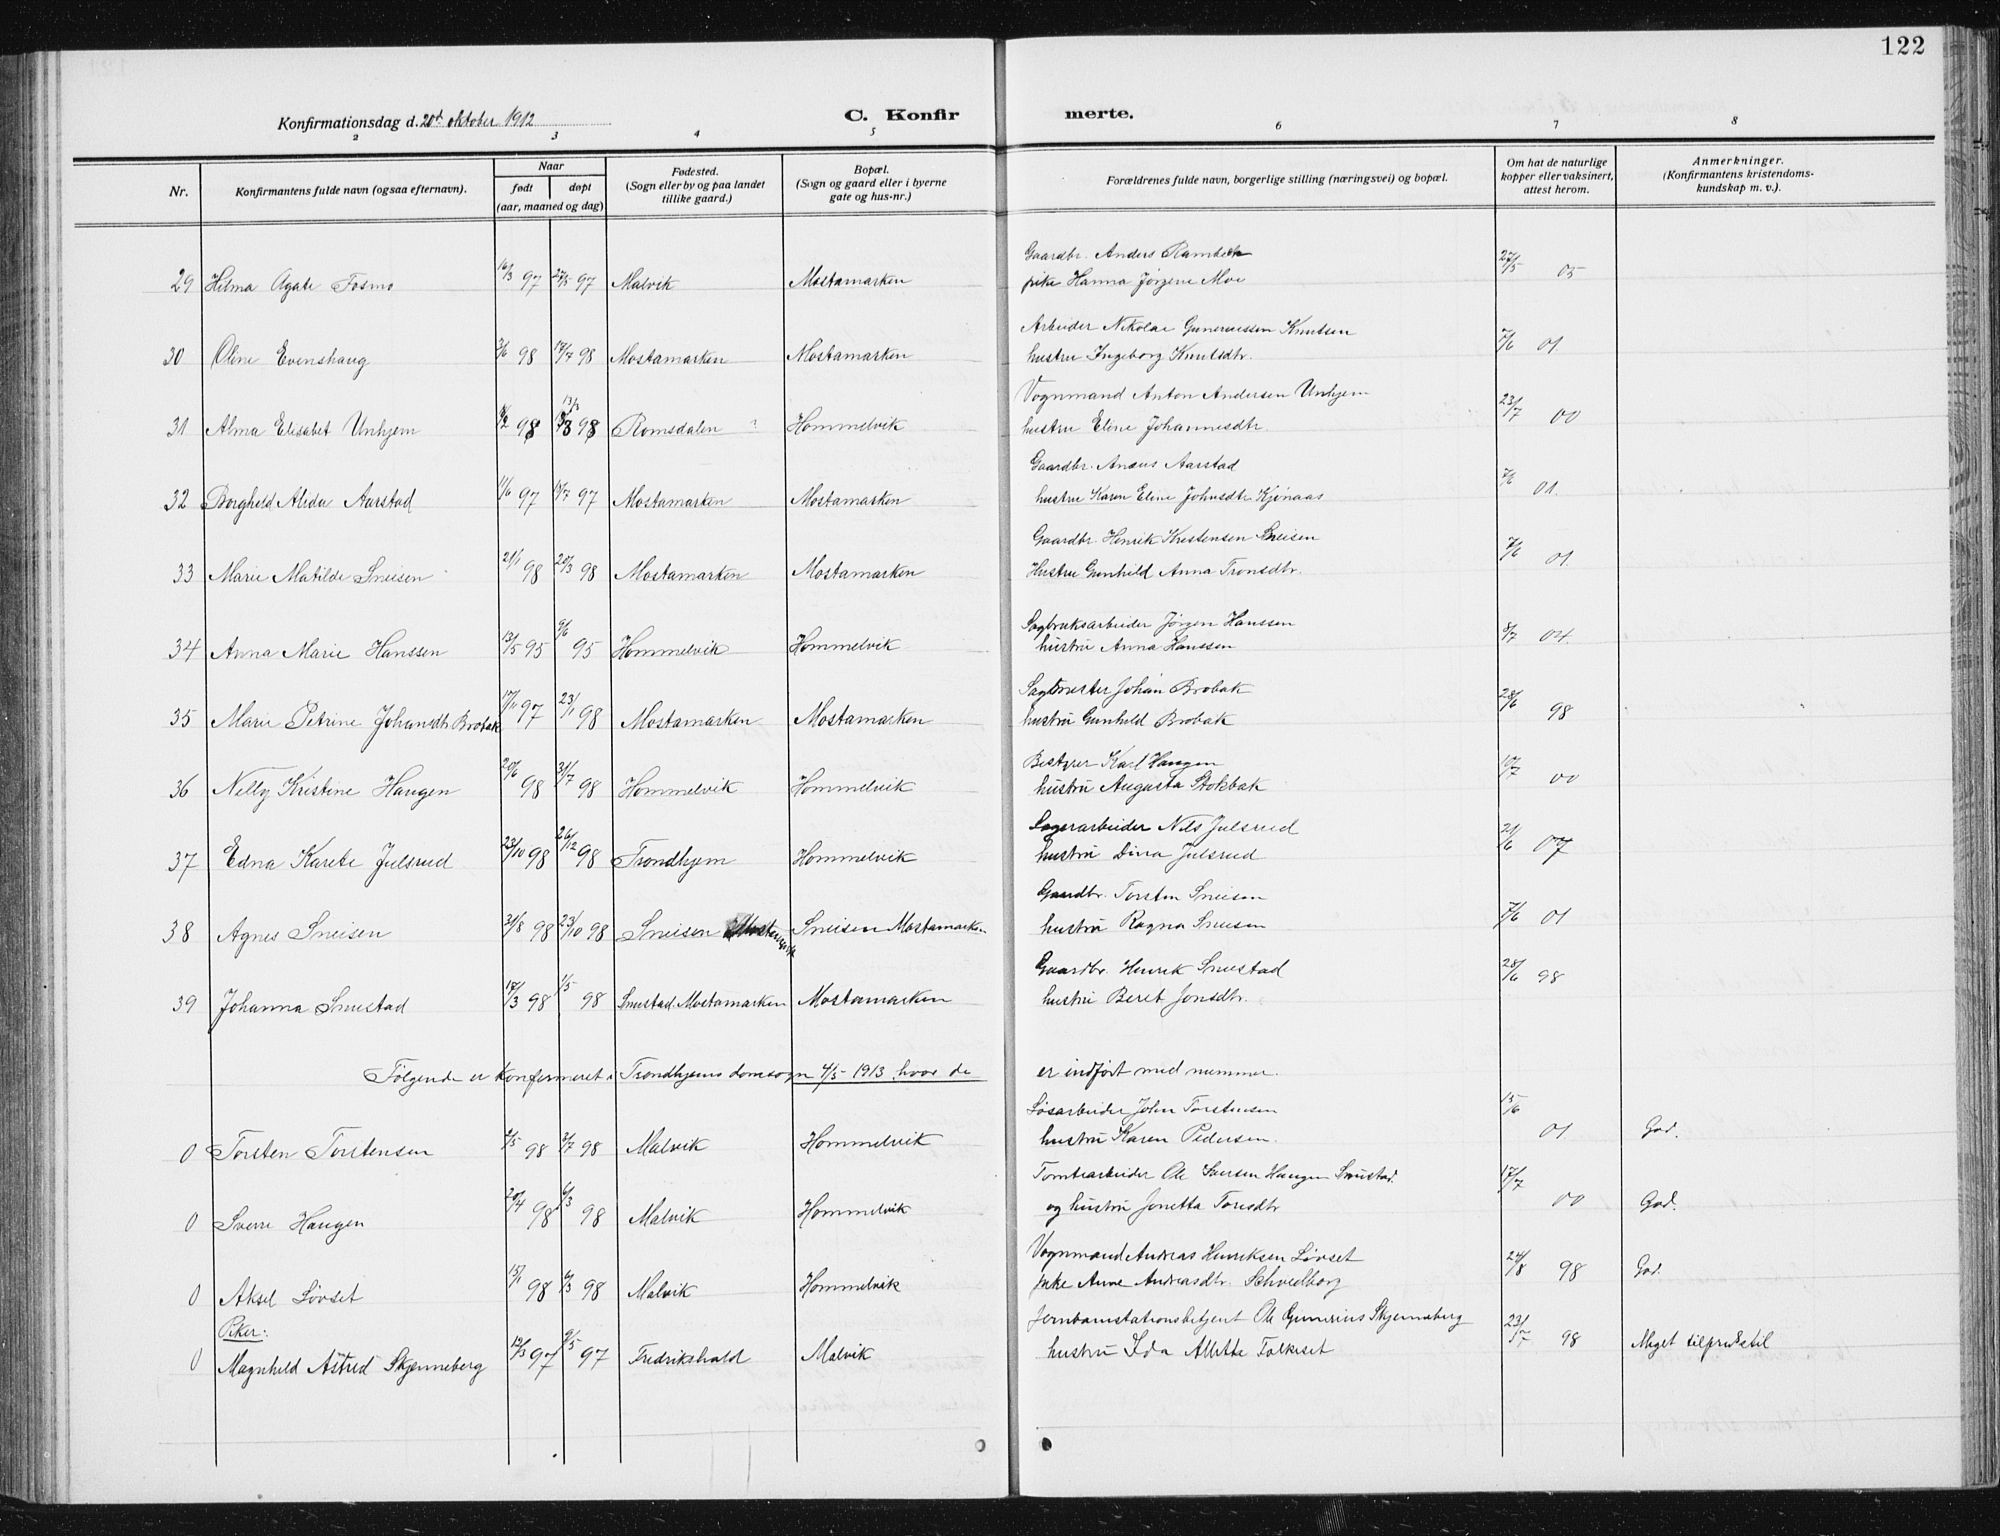 122
Konfirmationsdag d. 20de oktober 1912
C. Konfirmerte.
2 3 4 5 6 7 8
Nr. | Konfirmantens fulde navn (ogsaa efternavn). | Naar født døpt (aar, maaned og dag) | Fødested. (Sogn eller by og paa landet tillike gaard.) | Bopæl. (Sogn og gaard eller i byerne gate og hus-nr.) | Forældrenes fulde navn, borgerlige stilling (næringsvei) og bopæl. | Om hat de naturlige kopper eller vaksinert, attest herom. | Anmerkninger. (Konfirmantens kristendomskundskap m. v.).
Gaardbr. Anders Rambek
29 Hilma Agate Fosmo 16/3 97 27/5 97 Malvik Mostamarken pike Hanna Jørgine Moe 27/5 05
Arbeider Nikolai Gunerissen Knutsen
30 Oline Evenshaug 3/6 98 17/7 98 Mostamarken Mostamarken hustru Ingeborg Knutsdtr. 7/6 01.
Vognmand Anton Andersen Unhjem
31 Alma Elisabet Unhjem 9/2 98 13/3 98 Romsdalen ? Hommelvik hustru Eline Johannesdtr. 23/7 00
Gaardbr. Anæus Aarstad
32 Borghild Alida Aarstad 11/6 97 18/7 97 Mostamarken Mostamarken hustru Karen Eline Johnsdtr. Kjønaas 7/6 01.
Gaardbr. Henrik Kristensen Sneisen
33 Marie Matilde Sneisen 21/1 98 20/3 98 Mostamarken Mostamarken Hustru Gunhild Anna Tronsdtr. 7/6 01.
Sagbruksarbeider Jørgen Hanssen
34 Anna Marie Hanssen 13/5 95 9/6 95 Hommelvik Hommelvik hustru Anna Hanssen 8/7 04.
Sagmester Johan Brobak
35 Marie Petrine Johansdtr Brobak 17/11 97 23/1 98 Mostamarken Mostamarken hustru Gunhild Brobak 28/6 98
Bestyrer Karl Haugen
36 Nelly Kristine Haugen 20/6 98 31/7 98 Hommelvik Hommelvik hustru Augusta Stokbak 10/7 00
Sagerarbeider Nils Julsrud
37 Edna Karete Julsrud 23/10 98 26/12 98 Trondhjem Hommelvik hustru Dina Julsrud 21/6 07
Gaardbr. Torsten Sneisen
38 Agnes Sneisen 31/8 98 23/10 98 Sneisen Mostamark Sneisen Mostamarken hustru Ragna Sneisen 7/6 01
Gaardbr. Henrik Snustad
39 Johanna Snustad 17/3 98 1/5 98 Snustad. Mostamarken Mostamarken hustru Beret Jonsdtr. 28/6 98
Følgende er konfirmeret i Trondhjems domsogn 4/5 1913 hvor de er indført med nummer.
Løsarbeider John Torstensen
0 Torsten Torstensen 2/5 98 3/7 98 Malvik Hommelvik hustru Karen Pedersen. 15/6 01 God.
Tomtearbeider Ole Larsen Haugen Snustad.
0 Sverre Haugen 20/4 98 6/3 98 Malvik Hommelvik og hustru Jonetta Toresdtr 17/7 00 God.
Vognmand Andreas Henriksen Løvset
0 Aksel Løvset 15/1 98 6/3 98 Malvik Hommelvik pike Anne Andreasdtr. Schvedborg 24/8 98 God.
Piker:
Jernbanestationsbetjent Ole Gunerius Skjenneberg
0 Magnhild Astrid Skjenneberg 12/3 97 9/5 97 Fredrikshald Malvik hustru Ida Allette Folkeset 23/7 98 Meget tilfredsstil